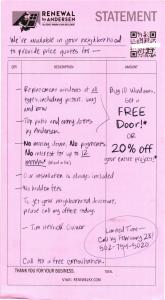 RENEWAL
by ANDERSEN
STATEMENT
We're available in your neighborhood
to provide price quotes for —
QTY.
DESCRIPTION
AMOUNT
- Replacement windows of all
types, including picture, bay
and bow
- Top patio and entry doors
by Andersen
- No money down, No payments,
No interest for up to 12
months!
- Our installation is always included
- No hidden fees
To get your neighborhood discount,
please call my office today.
- Tim
Call for a free consultation.
Buy 10 Windows,
Get a
FREE
Door!*
OR
20% off
your entire project!*
Limited Time —
Call by February 28!
502-754-5020
THANK YOU FOR YOUR BUSINESS.
TOTAL